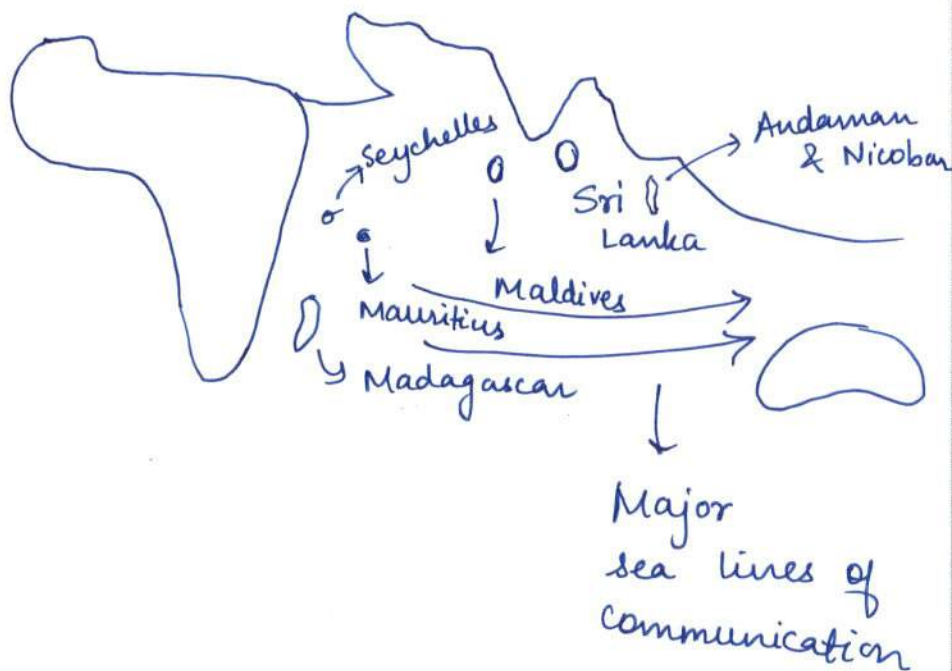 Seychelles
Andaman
& Nicobar
Sri
Lanka
Maldives
Mauritius
Madagascar
Major
sea lines of
communication